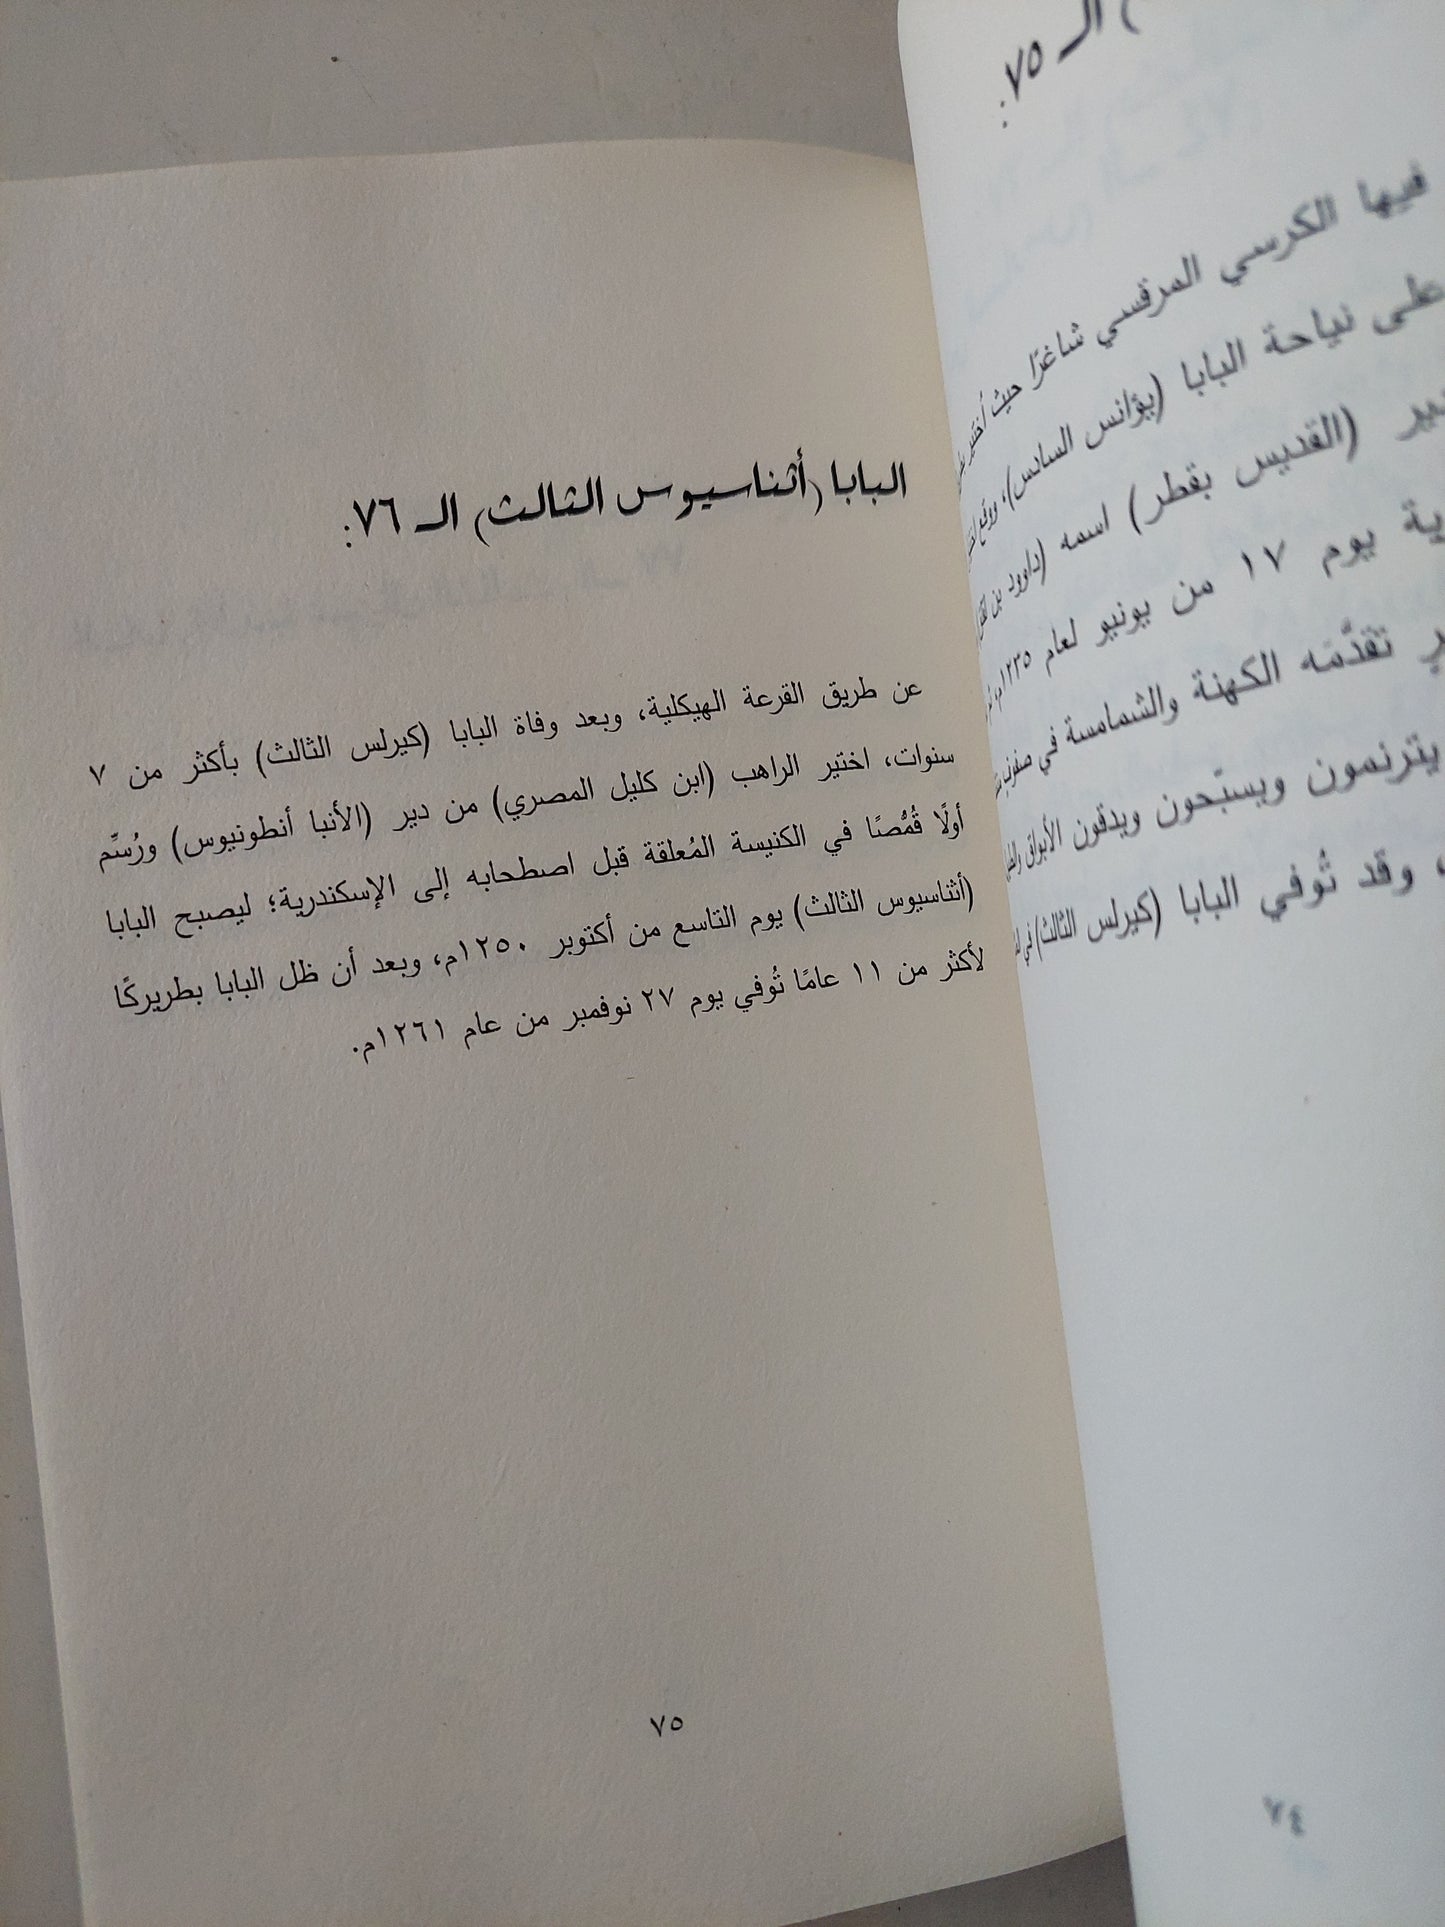 الـ ٧٥:
فيها الكرسي المرقسي شاغرًا حيث أختير
على نياحة البابا (يؤانس السادس)، ووقع
(القديس بقطر) اسمه (داوود بن
يوم ١٧ من يونيو لعام ١٢٣٥م،
تقدَّمَه الكهنة والشمامسة في صفوف
يترنمون ويسبّحون ويدقون الأبواق
، وقد تُوفي البابا (كيرلس الثالث) في
٧٤
البابا (أثناسيوس الثالث) الـ ٧٦:
عن طريق القرعة الهيكلية، وبعد وفاة البابا (كيرلس الثالث) بأكثر من ٧
سنوات، اختير الراهب (ابن كليل المصري) من دير (الأنبا أنطونيوس) ورُسِّم
أولًا قُمُّصًا في الكنيسة المُعلقة قبل اصطحابه إلى الإسكندرية؛ ليصبح البابا
(أثناسيوس الثالث) يوم التاسع من أكتوبر ١٢٥٠م، وبعد أن ظل البابا بطريركًا
لأكثر من ١١ عامًا تُوفي يوم ٢٧ نوفمبر من عام ١٢٦١م.
٧٥